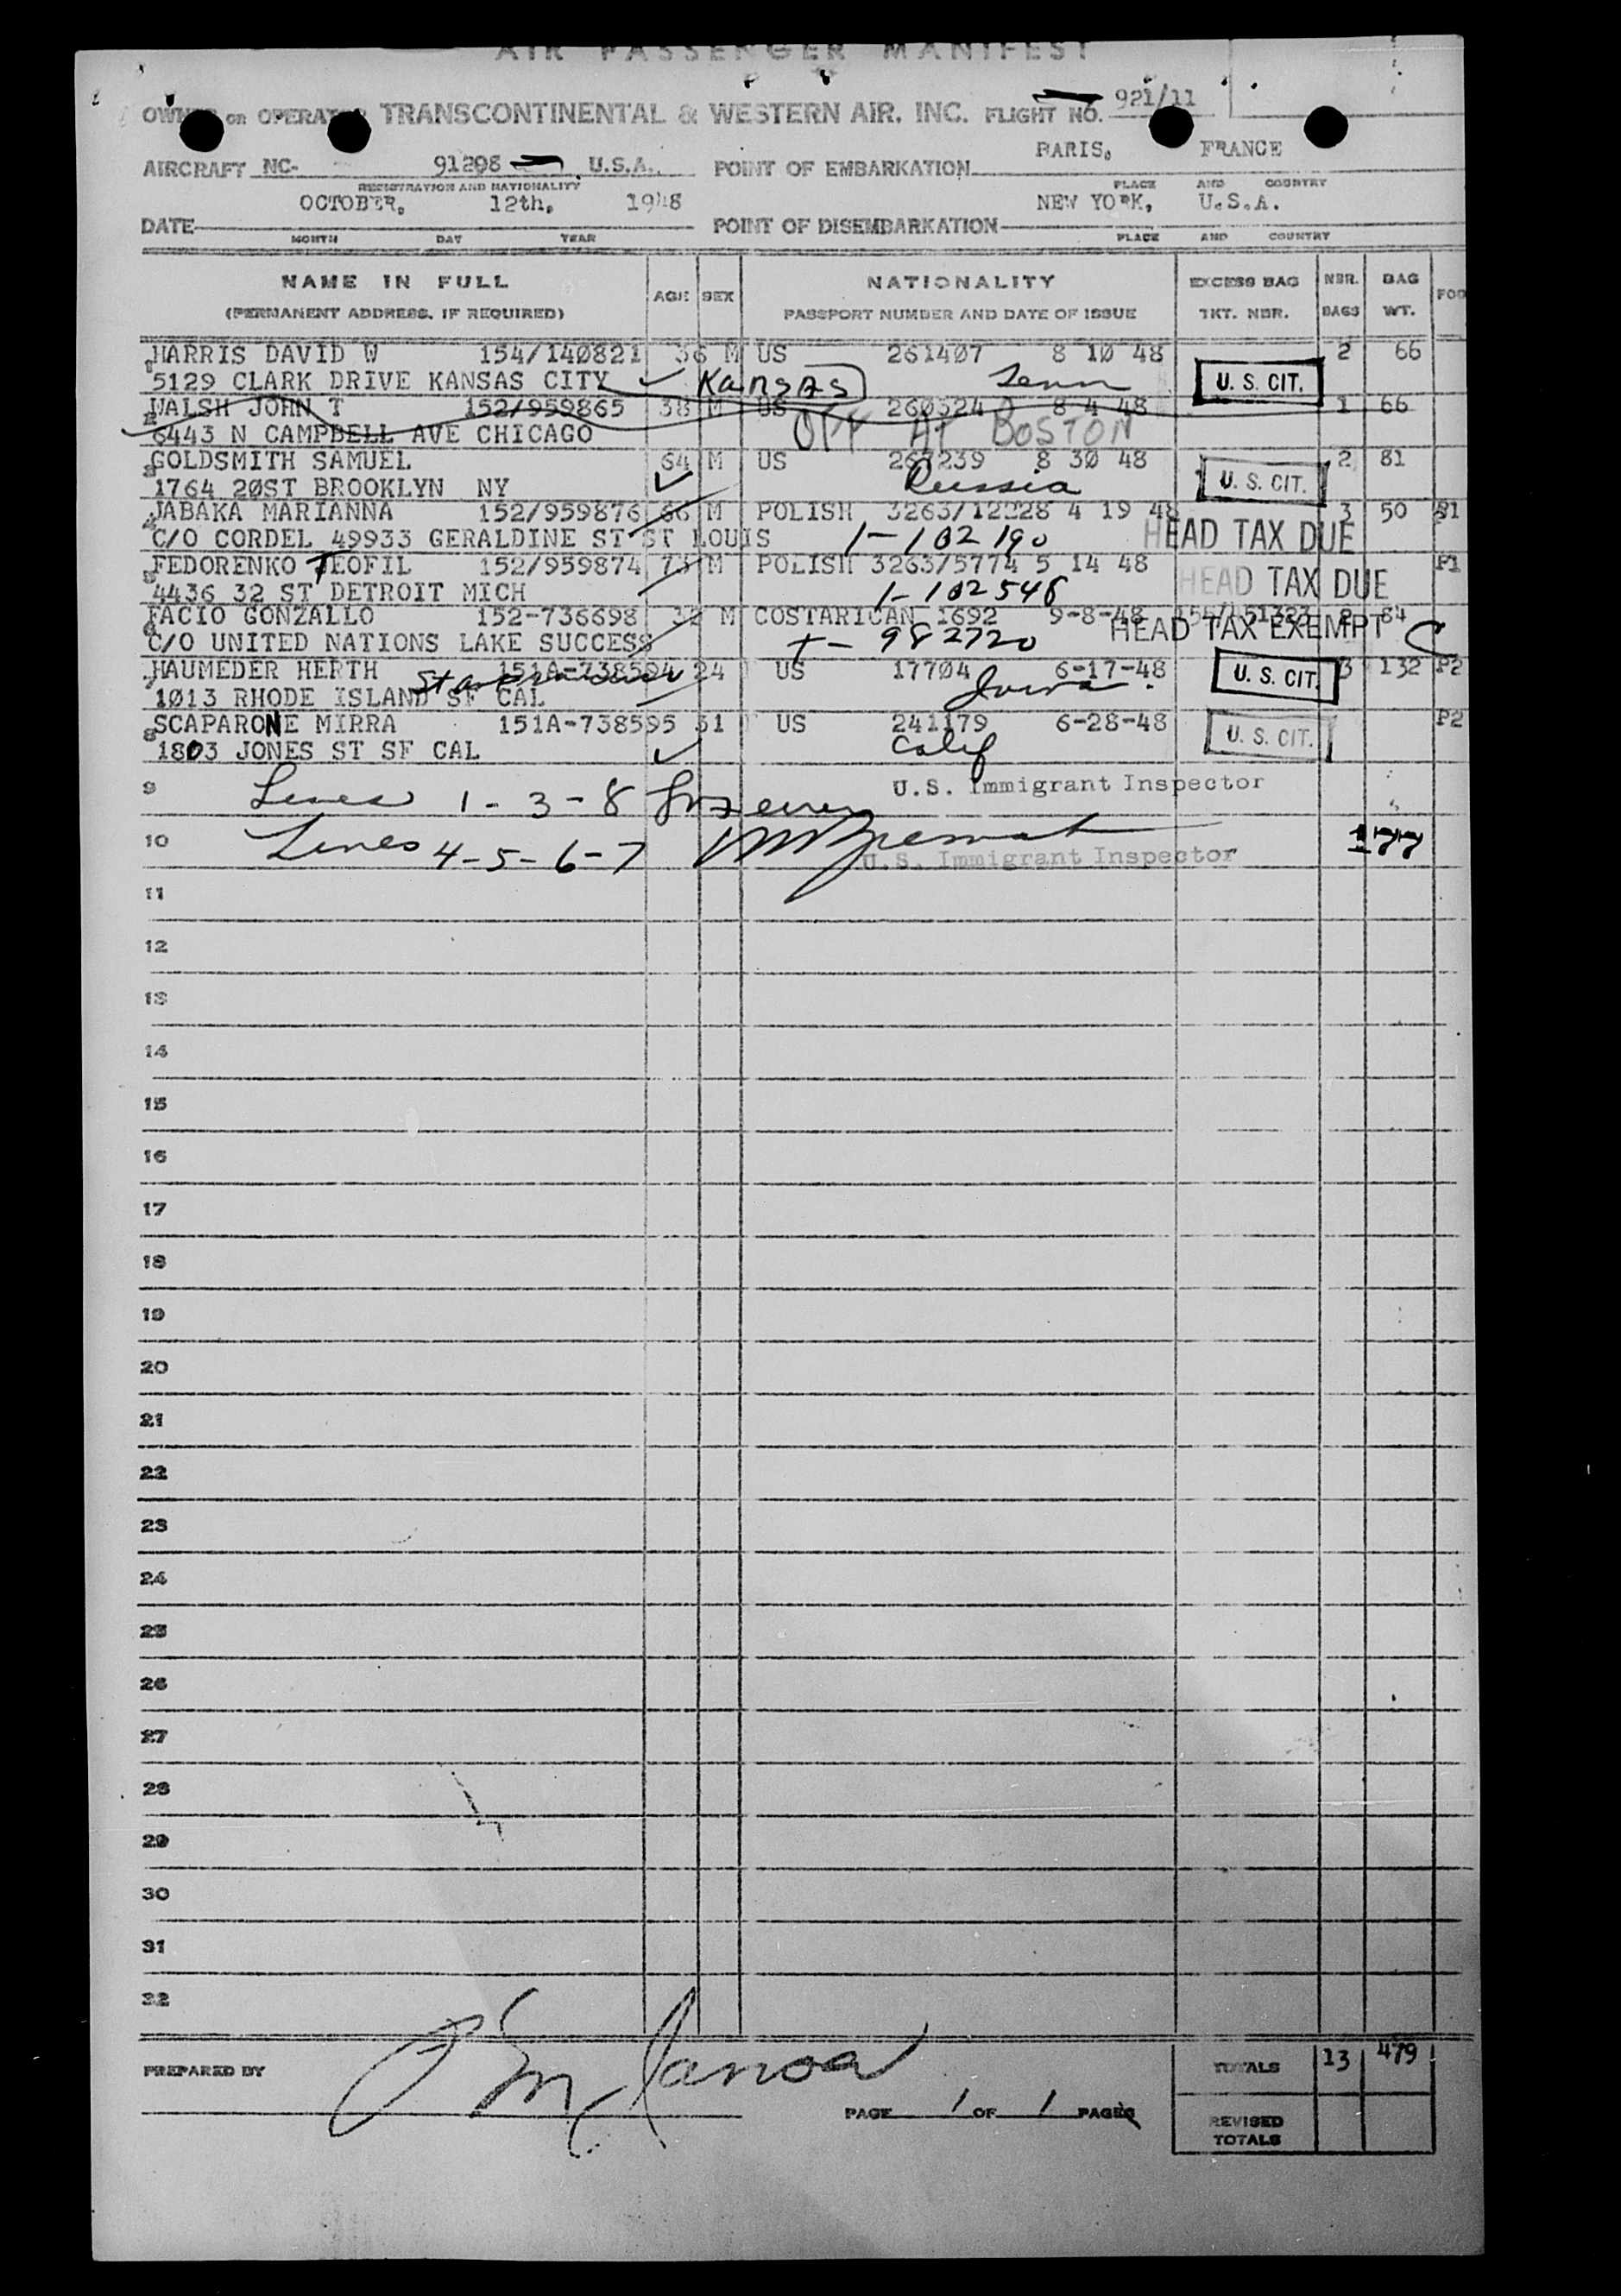 AIR PASSENGER MANIFEST
OWNER OR OPERATOR TRANSCONTINENTAL & WESTERN AIR, INC. FLIGHT NO. 921/11
AIRCRAFT NC- 91208 U.S.A. POINT OF EMBARKATION PARIS, FRANCE
REGISTRATION AND NATIONALITY PLACE AND COUNTRY
DATE OCTOBER, 12th, 1948 POINT OF DISEMBARKATION NEW YORK, U.S.A.
MONTH DAY YEAR PLACE AND COUNTRY
NAME IN FULL AGE SEX NATIONALITY EXCESS BAG NBR. BAG FOO
(PERMANENT ADDRESS, IF REQUIRED) PASSPORT NUMBER AND DATE OF ISSUE TKT. NBR. BAGS WT.
1 HARRIS DAVID W 154/140821 36 M US 261407 8 10 48 2 66
5129 CLARK DRIVE KANSAS CITY Kansas Tenn U. S. CIT.
2 WALSH JOHN T 152/959865 38 M US 260324 8 4 48 1 66
6443 N CAMPBELL AVE CHICAGO OFF AT BOSTON
3 GOLDSMITH SAMUEL 64 M US 267239 8 30 48 2 81
1764 20ST BROOKLYN NY Russia U. S. CIT.
4 JABAKA MARIANNA 152/959876 66 M POLISH 3263/12228 4 19 48 3 50
C/O CORDEL 49933 GERALDINE ST ST LOUIS 1-102190 HEAD TAX DUE
5 FEDORENKO TEOFIL 152/959874 73 M POLISH 3263/5774 5 14 48 P1
4436 32 ST DETROIT MICH 1-102548 HEAD TAX DUE
6 FACIO GONZALLO 152-736698 32 M COSTARICAN 1692 9-8-48 84
C/O UNITED NATIONS LAKE SUCCESS 982720 HEAD TAX EXEMPT C
7 HAUMEDER HERTH 151A-738594 24 US 17704 6-17-48 3 132 P2
1013 RHODE ISLAND SF CAL Iowa. U. S. CIT.
8 SCAPARONE MIRRA 151A-738595 31 US 241179 6-28-48 P2
1803 JONES ST SF CAL Calif U. S. CIT.
9 Lines 1-3-8 U.S. Immigrant Inspector
10 Lines 4-5-6-7 U.S. Immigrant Inspector
11
12
13
14
15
16
17
18
19
20
21
22
23
24
25
26
27
28
29
30
31
32
PREPARED BY TOTALS 13 479
PAGE 1 OF 1 PAGES REVISED
TOTALS